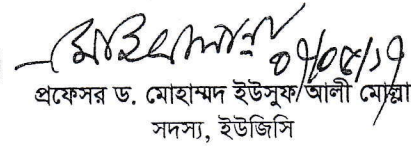 ০৭/০৫/১৭
প্রফেসর ড. মোহাম্মদ ইউসুফ আলী মোল্লা
সদস্য, ইউজিসি